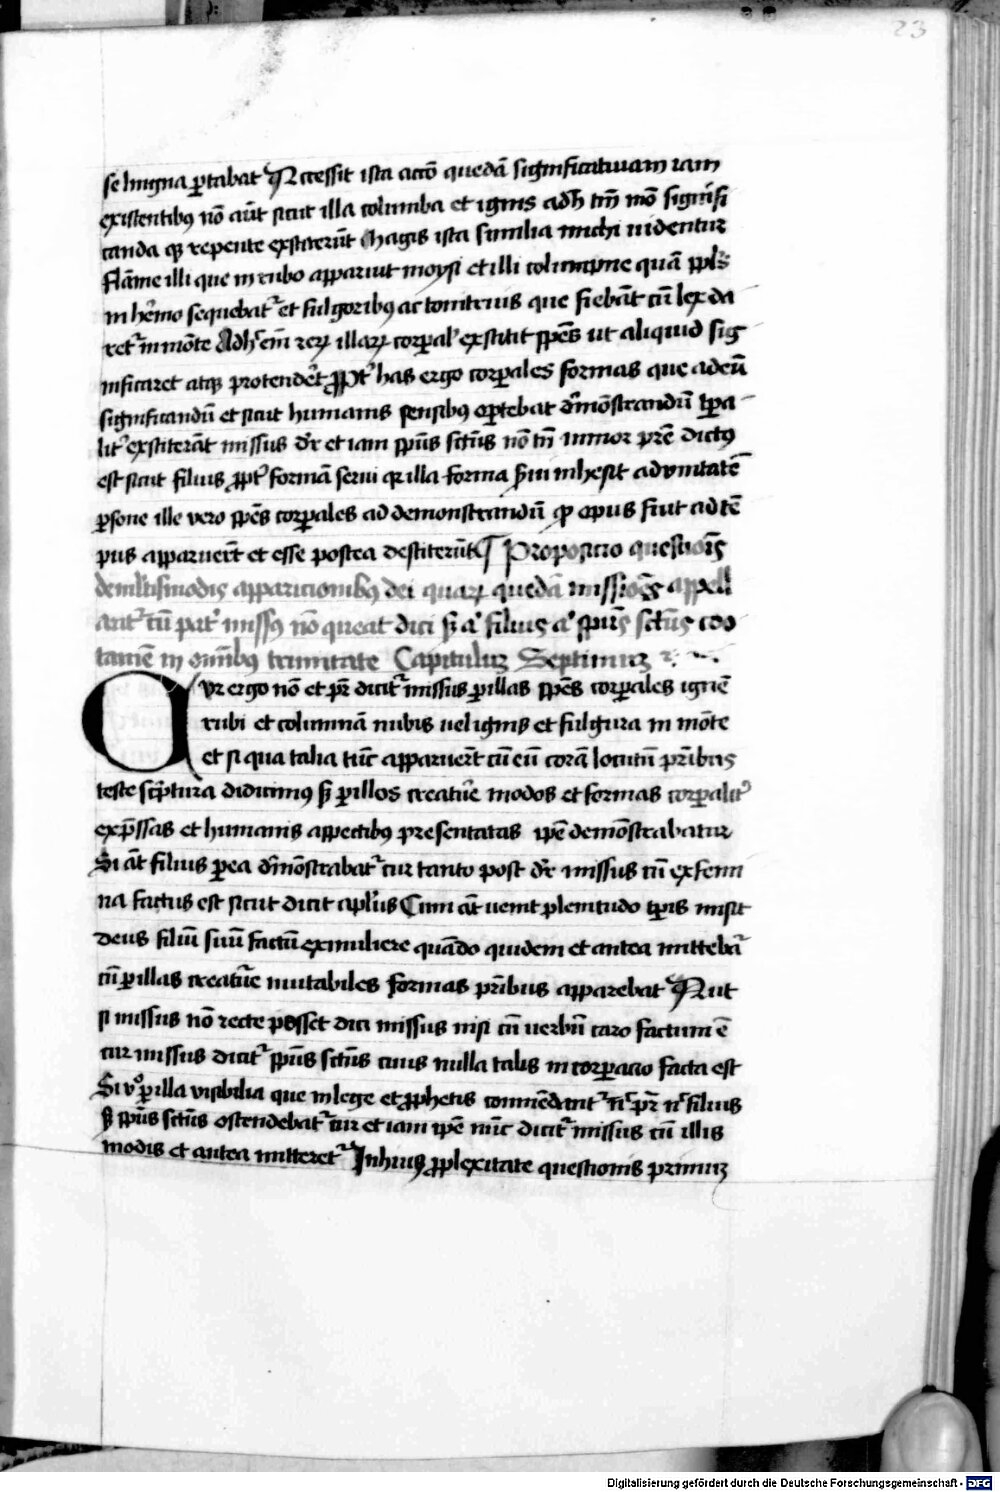 23
se lingna ꝑtabat Accessit ista acc̄o quedā significatiuam iam
existentibꝯ nō aūt sicut illa columba et ignis adh̄ tm̄ mō signifi
canda qꝫ repente exstiterūt Magis ista similia michi uidentur
flāme illi que in rubo appariut moysi et illi columpne quā ppl̄s
in hēmo sequebat᷑ et fulgoribꝯ ac tonitruis que fiebāt cū lex da
ret᷑ in mōte Adh᷑ em̄ reꝝ illaꝝ corꝑal᷑ exstitit spēs ut aliquid sig
nificaret atqꝫ protendēt ꝓpt᷑ has ergo corꝑales formas que ad eū
significandū et sicut humanis sensibꝯ oꝑtebat dēmōstrandū tꝑa
lit᷑ exstiterāt missus dr̄ et iam spūs sctūs nō tn̄ minor prē dictꝯ
est sicut filius ꝓpt᷑ formā serui qr illa forma s̄m inhesit ad vnitatē
ꝑsone ille vero spēs corꝑales ad demonstrandū qᷤ opus fiut ad tē
pus apparuer̄t et esse postea destiterūt ¶ Proposicio questiōis
de ml̄tifmodis apparicionibꝯ dei quaꝝ quedā missiōēs appell
ant᷑ cū pat᷑ missꝯ nō queat dici s̄ aᷤ filius aᷤ spūs sctūs coo
tamē in om̄ibꝯ trinitate Capitulum Septimum
Cur ergo nō et pr̄ dicit᷑ missus ꝑ illas spēs corꝑales ignē
rubi et columnā nubis uel ignis et fulgura in mōte
et si qua talia tūc apparuer̄t cū eū corā locutū pr̄ibus
teste sc̄ptura didicimꝯ s̄ ꝑ illos creatur̄e modos et formas corꝑalit᷑
exp̄ssas et humanis aspectibꝯ presentatas ip̄e demōstrabatur
Si at̄ filius ꝑ ea dēmōstrabat᷑ cur tanto post dr̄ missus cū ex femi
na factus est sicut dicit apl̄us Cum at̄ uenit plenitudo tꝑis misit
deus filiū suū factū ex muliere quādo quidem et antea mitteba᷑
cū ꝑ illas creatur̄e mutabiles formas pr̄ibus apparebat Aut
si missus nō recte posset dici missus nisi cū uerbū caro factum ē
cur missus dicit᷑ spūs sctūs cuius nulla talis incorꝑacio facta est
Si vᵒ ꝑ illa visibilia que in lege et ꝓphetis commēdant᷑ nᷤ pr̄ nᷤ filius
s̄ spūs sctūs ostendebat᷑ cur et iam ip̄e nūc dicit᷑ missus cū illis
modis et antea mitteret᷑ In huius ꝑplexitate questionis primum
Digitalisierung gefördert durch die Deutsche Forschungsgemeinschaft - DFG